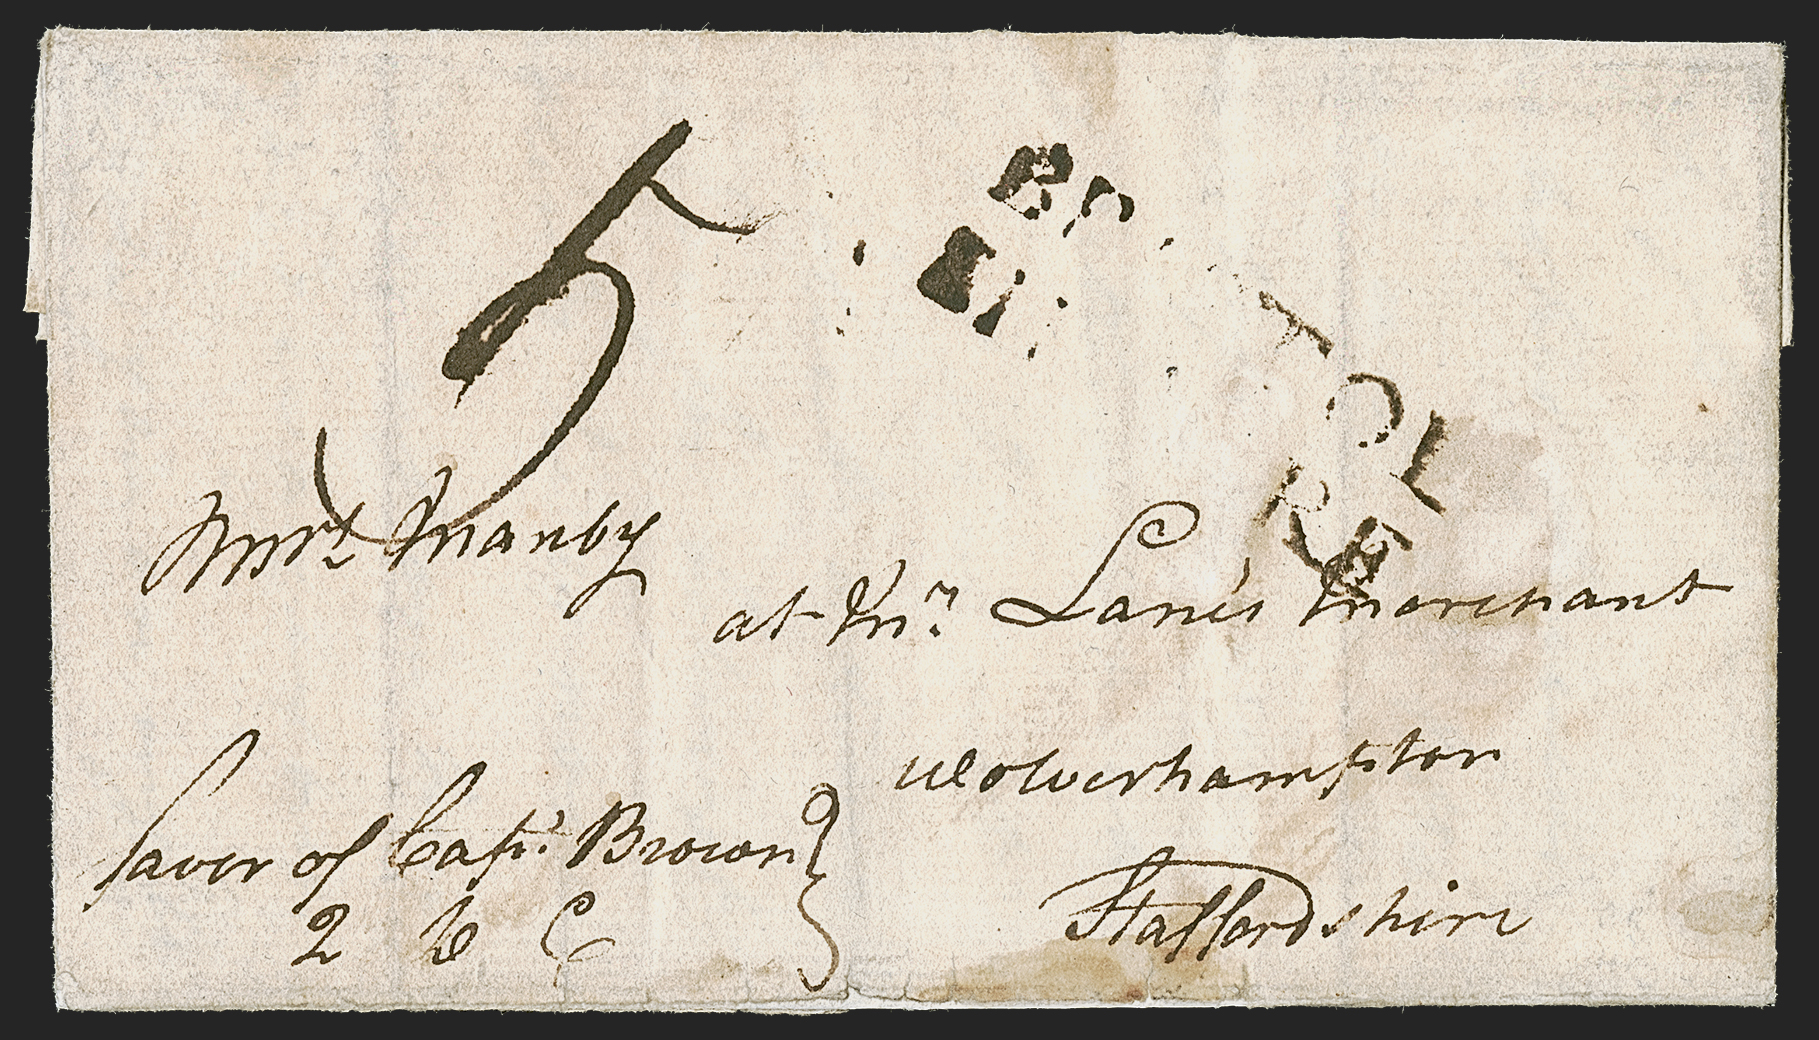 5
BR TOL
RE
Mrs Manby
at Mr. Lane's Merchant
Wolverhampton
Staffordshire
favor of Capt. Brown
Q D C